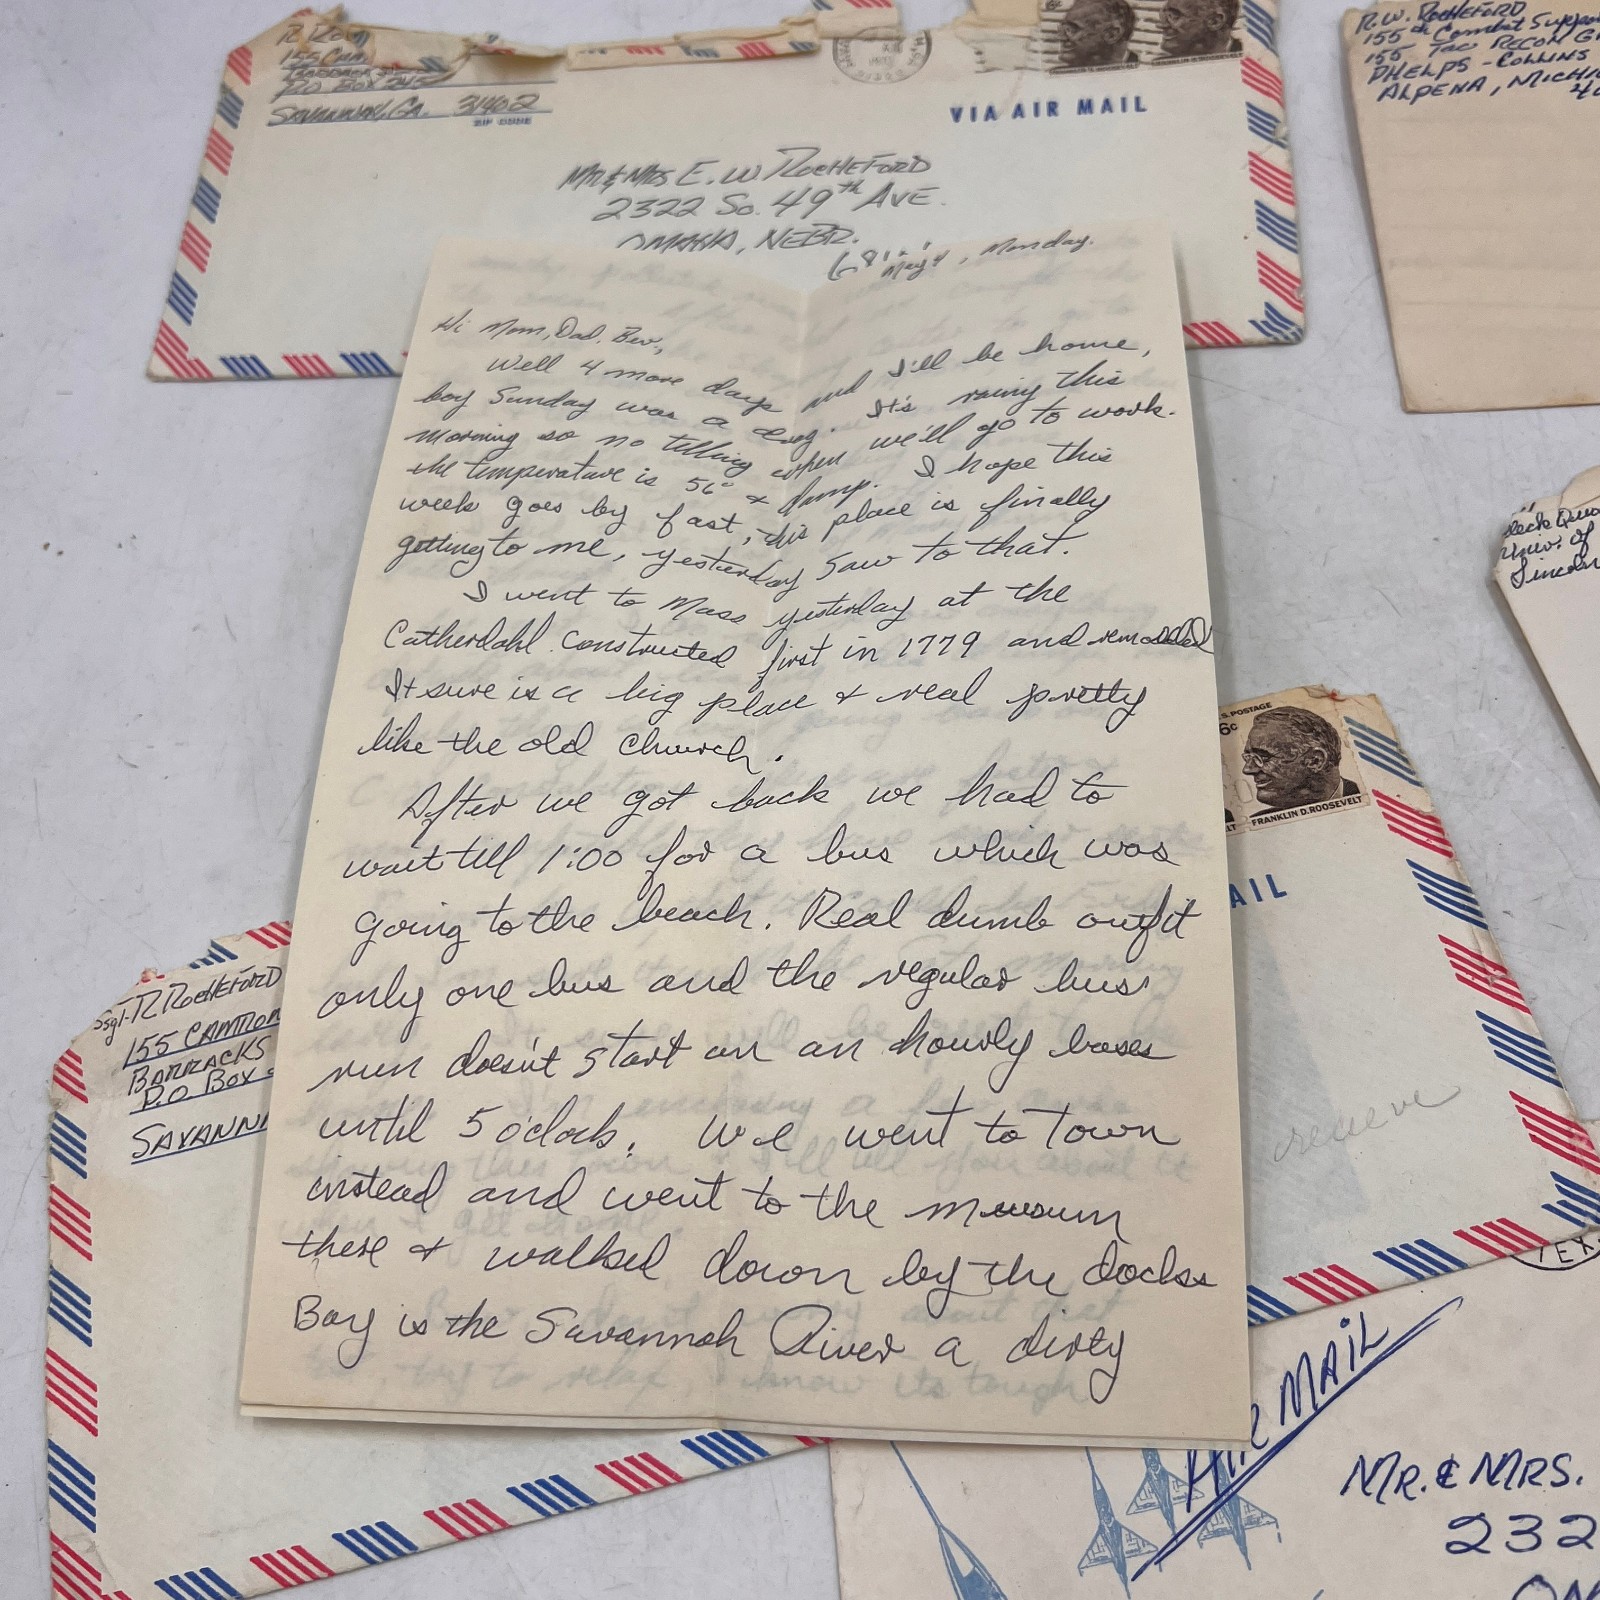 R Ro
155 Cam
Barracks
P.O. Box
Savannah, GA. 31402
ZIP CODE
6c
VIA AIR MAIL
Mr & Mrs E. W Rocheford
2322 So. 49th Ave.
Omaha, Nebr.
R. W. Rocheford
155th Combat Suppor
155 Tac Recon G
Phelps - Collins
Alpena, Michi
, Monday.
Hi Mom, Dad, Bev.,
Well 4 more days and I'll be home,
boy Sunday was a drag. It's rainy this
morning so no telling when we'll go to work.
the temperature is 56° & damp. I hope this
week goes by fast, this place is finally
getting to me, yesterday saw to that.
I went to Mass yesterday at the
Catherdahl constructed first in 1779 and remodled
It sure is a big place & real pretty
like the old church.
After we got back we had to
wait till 1:00 for a bus which was
going to the beach. Real dumb outfit
only one bus and the regular bus
run doesn't start on an hourly bases
until 5 o'clock. We went to town
instead and went to the museum
there & walked down by the docks
Boy is the Savannah River a dirty
Univ. of
Lincoln
S. POSTAGE
6c
LT
FRANKLIN D. ROOSEVELT
AIL
Ssgt R Rocheford
155 Camron
Barracks
P.O. Box
Savann
TEX
Air Mail
Mr. & Mrs.
232
Om